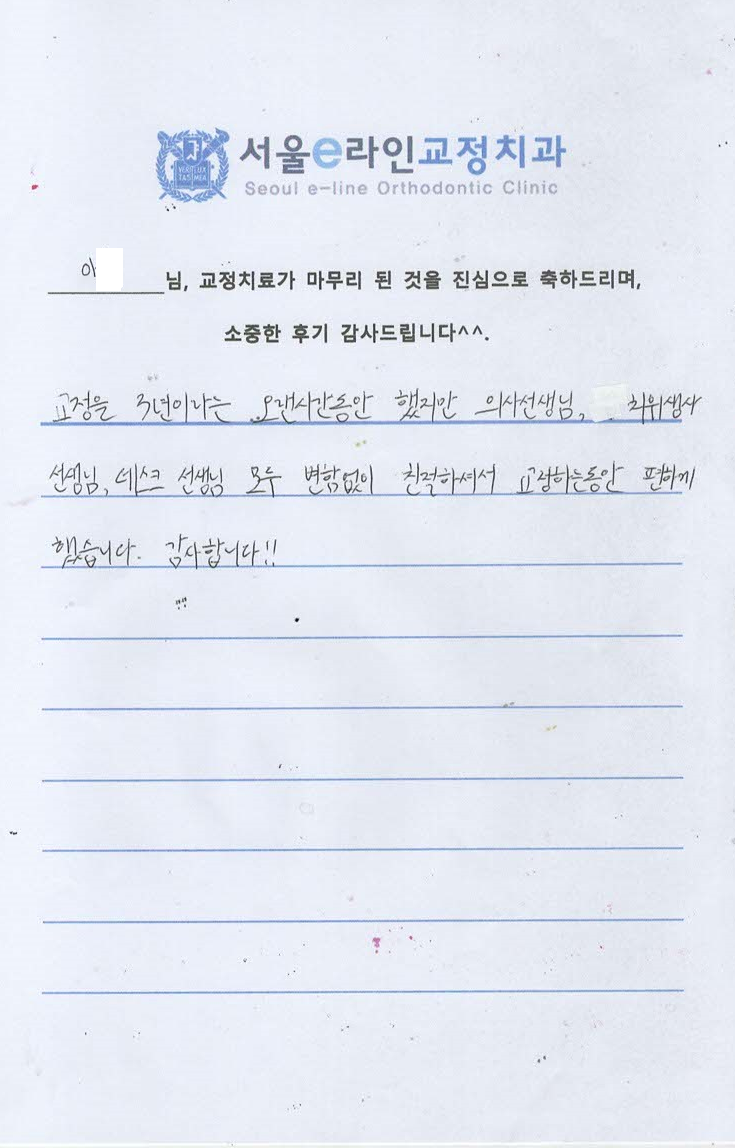 서울e라인교정치과
Seoul e-line Orthodontic Clinic
VERI LUX TAS MEA
님, 교정치료가 마무리 된 것을 진심으로 축하드리며,
소중한 후기 감사드립니다^^.
교정을 3년이라는 오랜시간동안 했지만 의사선생님, 치위생사
선생님, 데스크 선생님 모두 변함없이 친절하셔서 교정하는동안 편하게
했습니다. 감사합니다!!